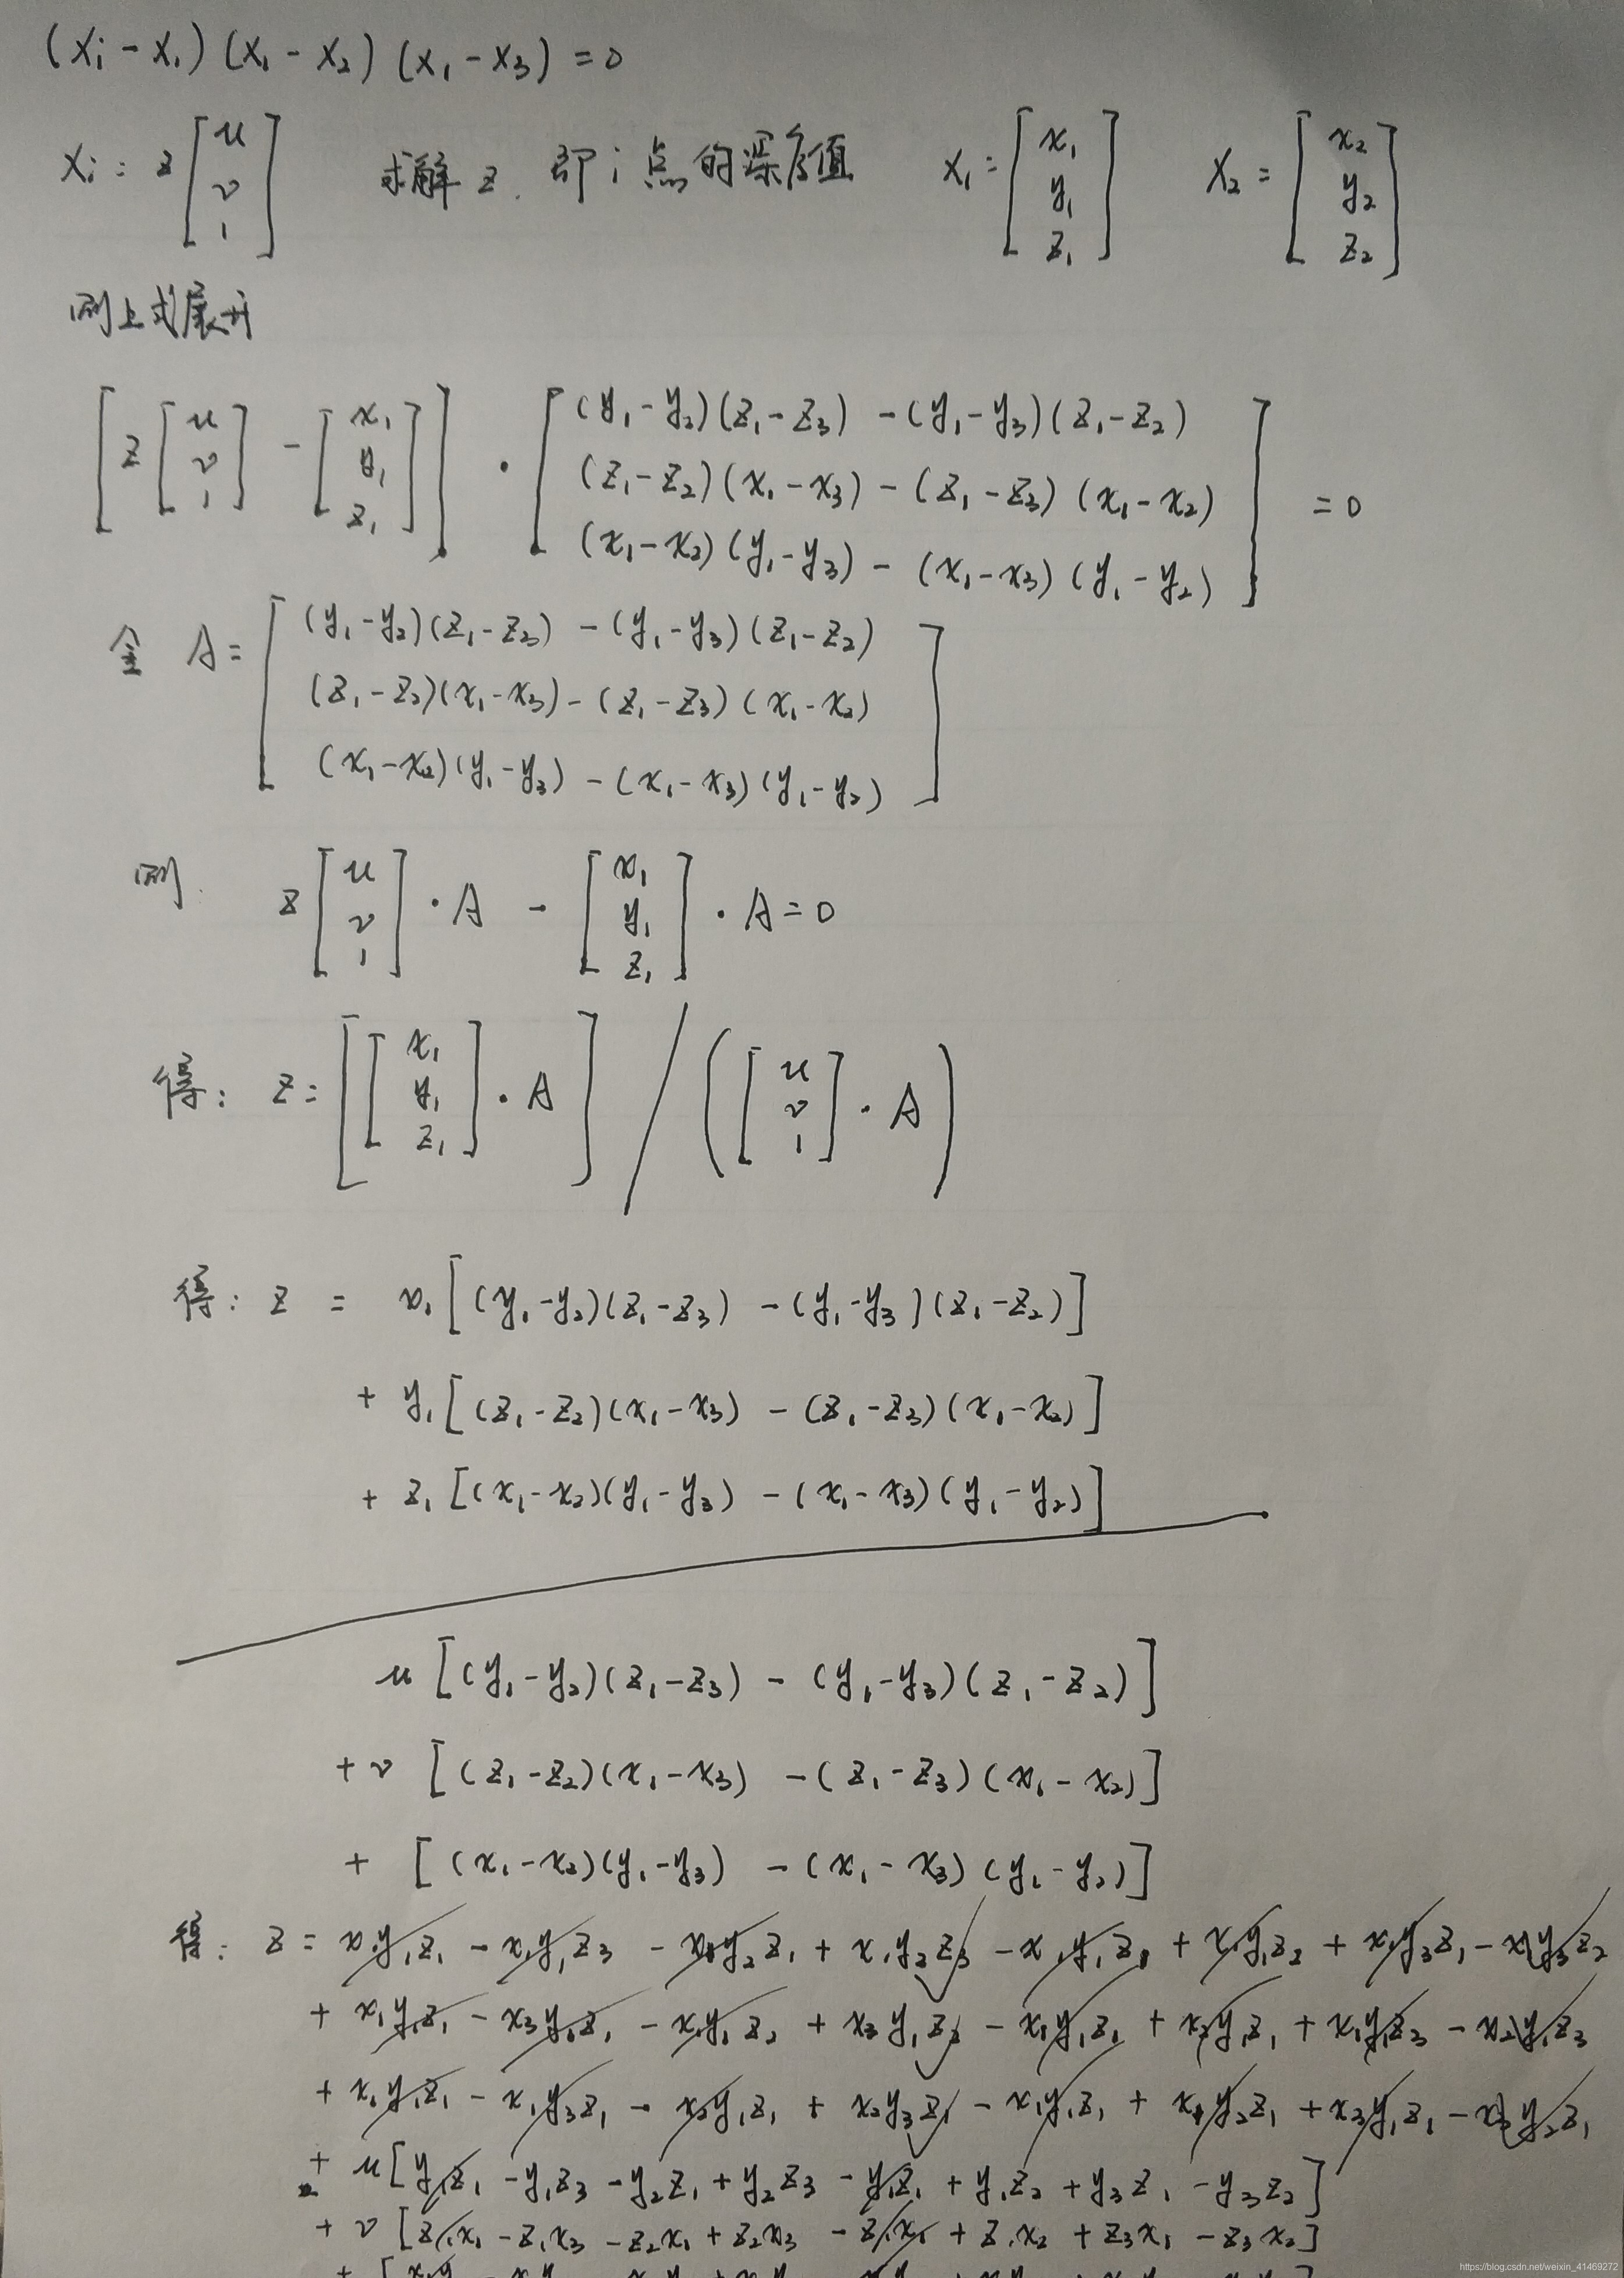 (X_i - X_1)(X_1 - X_2)(X_1 - X_3) = 0
X_i : z [u v 1] 求解 z. 即 i 点的深度值 X_1 = [x_1 y_1 z_1] X_2 = [x_2 y_2 z_2]
则上式展开
[z [u v 1] - [x_1 y_1 z_1]] · [(y_1-y_2)(z_1-z_3) - (y_1-y_3)(z_1-z_2)
(z_1-z_2)(x_1-x_3) - (z_1-z_3)(x_1-x_2)
(x_1-x_2)(y_1-y_3) - (x_1-x_3)(y_1-y_2)] = 0
令 A = [(y_1-y_2)(z_1-z_3) - (y_1-y_3)(z_1-z_2)
(z_1-z_2)(x_1-x_3) - (z_1-z_3)(x_1-x_2)
(x_1-x_2)(y_1-y_3) - (x_1-x_3)(y_1-y_2)]
则. z [u v 1] · A - [x_1 y_1 z_1] · A = 0
得: z = [[x_1 y_1 z_1] · A] / ([u v 1] · A)
得: z = x_1 [(y_1-y_2)(z_1-z_3) - (y_1-y_3)(z_1-z_2)]
+ y_1 [(z_1-z_2)(x_1-x_3) - (z_1-z_3)(x_1-x_2)]
+ z_1 [(x_1-x_2)(y_1-y_3) - (x_1-x_3)(y_1-y_2)]
u [(y_1-y_2)(z_1-z_3) - (y_1-y_3)(z_1-z_2)]
+ v [(z_1-z_2)(x_1-x_3) - (z_1-z_3)(x_1-x_2)]
+ [(x_1-x_2)(y_1-y_3) - (x_1-x_3)(y_1-y_2)]
得: z = x_1y_1z_1 - x_1y_1z_3 - x_1y_2z_1 + x_1y_2z_3 - x_1y_1z_1 + x_1y_1z_2 + x_1y_3z_1 - x_1y_3z_2
+ x_1y_1z_1 - x_3y_1z_1 - x_1y_1z_2 + x_3y_1z_2 - x_1y_1z_1 + x_2y_1z_1 + x_1y_1z_3 - x_2y_1z_3
+ x_1y_1z_1 - x_1y_3z_1 - x_2y_1z_1 + x_2y_3z_1 - x_1y_1z_1 + x_1y_2z_1 + x_3y_1z_1 - x_3y_2z_1
+ u [y_1z_1 - y_1z_3 - y_2z_1 + y_2z_3 - y_1z_1 + y_1z_2 + y_3z_1 - y_3z_2]
+ v [z_1x_1 - z_1x_3 - z_2x_1 + z_2x_3 - z_1x_1 + z_1x_2 + z_3x_1 - z_3x_2]
https://blog.csdn.net/weixin_41469272